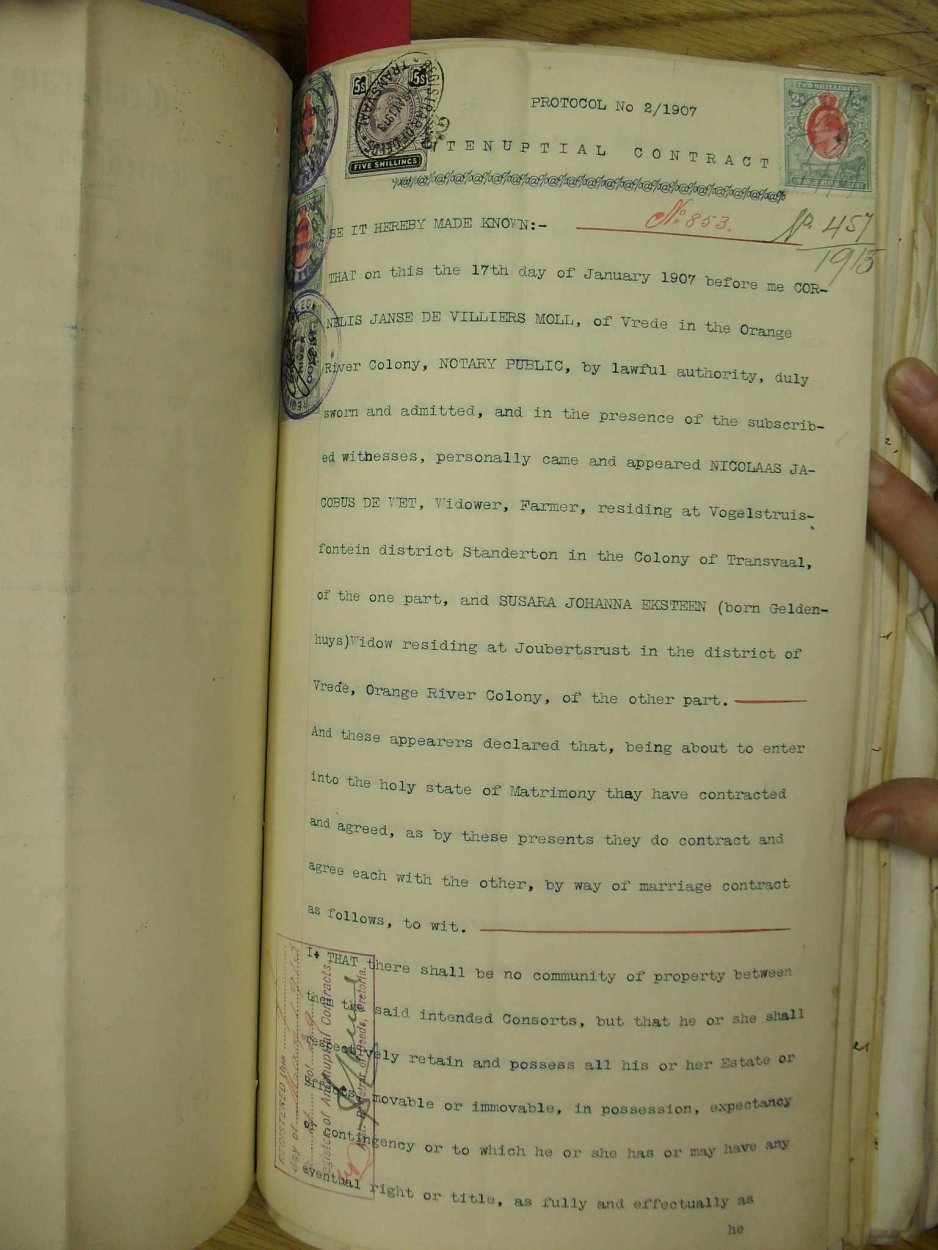 PROTOCOL No 2/1907
ANTENUPTIAL CONTRACT
BE IT HEREBY MADE KNOWN:-
No. 853.
No 457
1913
THAT on this the 17th day of January 1907 before me COR-
NELIS JANSE DE VILLIERS MOLL, of Vrede in the Orange
River Colony, NOTARY PUBLIC, by lawful authority, duly
sworn and admitted, and in the presence of the subscrib-
ed witnesses, personally came and appeared NICOLAAS JA-
COBUS DE WET, Widower, Farmer, residing at Vogelstruis-
fontein district Standerton in the Colony of Transvaal,
of the one part, and SUSARA JOHANNA EKSTEEN (born Gelden-
huys)Widow residing at Joubertsrust in the district of
Vrede, Orange River Colony, of the other part.
And these appearers declared that, being about to enter
into the holy state of Matrimony thay have contracted
and agreed, as by these presents they do contract and
agree each with the other, by way of marriage contract
as follows, to wit.
I. THAT there shall be no community of property between
them the said intended Consorts, but that he or she shall
respectively retain and possess all his or her Estate or
effects movable or immovable, in possession, expectancy
contingency or to which he or she has or may have any
eventual right or title, as fully and effectually as
he
5s 5s
FIVE SHILLINGS
REGISTRAR OF DEEDS
TRANSVAAL
TWO SHILLINGS
REGISTERED this
day of
Register of Antenuptial Contracts
Registrar of Deeds, Pretoria.